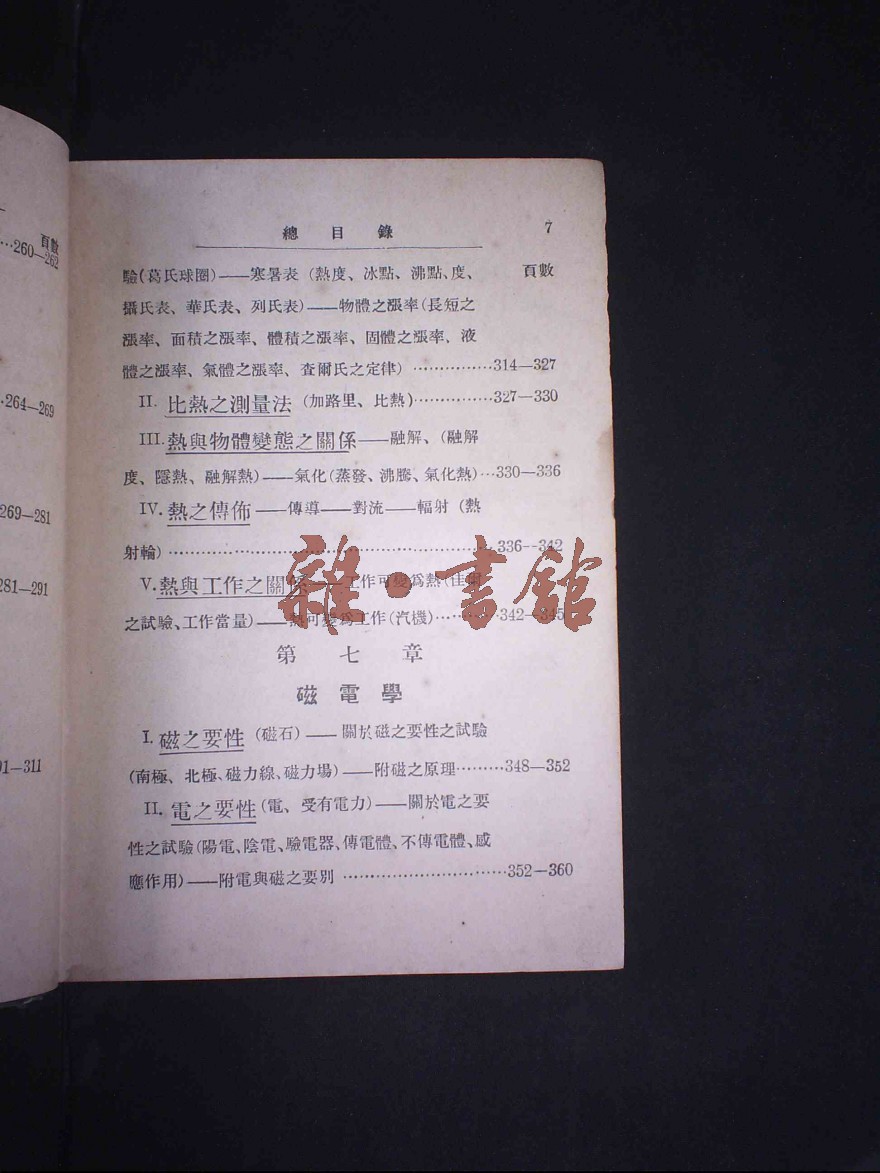 頁數
…260—262
·264—269
269—281
281—291
91—311
總目錄 7
驗(葛氏球圈)——寒暑表 (熱度、冰點、沸點、度、 頁數
攝氏表、華氏表、列氏表)——物體之漲率(長短之
漲率、面積之漲率、體積之漲率、固體之漲率、液
體之漲率、氣體之漲率、查爾氏之定律) ……………314—327
II. 比熱之測量法 (加路里、比熱)……………327—330
III. 熱與物體變態之關係——融解、(融解
度、隱熱、融解熱)——氣化(蒸發、沸騰、氣化熱)…330—336
IV. 熱之傳佈——傳導——對流——輻射 (熱
射輪) ……………………………………336—342
V. 熱與工作之關係——工作可變爲熱(佳
之試驗、工作當量)——熱可變爲工作(汽機)…………342—345
雜·書館
第七章
磁電學
I. 磁之要性 (磁石) —— 關於磁之要性之試驗
(南極、北極、磁力線、磁力場)——附磁之原理………348—352
II. 電之要性 (電、受有電力)——關於電之要
性之試驗(陽電、陰電、驗電器、傳電體、不傳電體、感
應作用)——附電與磁之要別 …………………………352—360